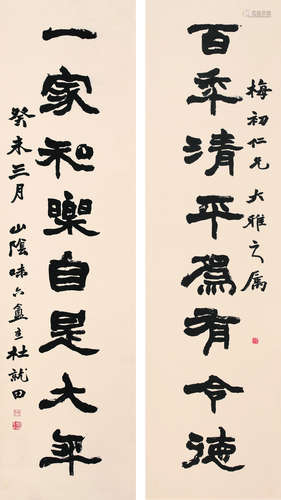 梅初仁兄大雅之属
百年清平為有令德
一家和樂自是大年
癸未三月 山陰味六盦主杜就田